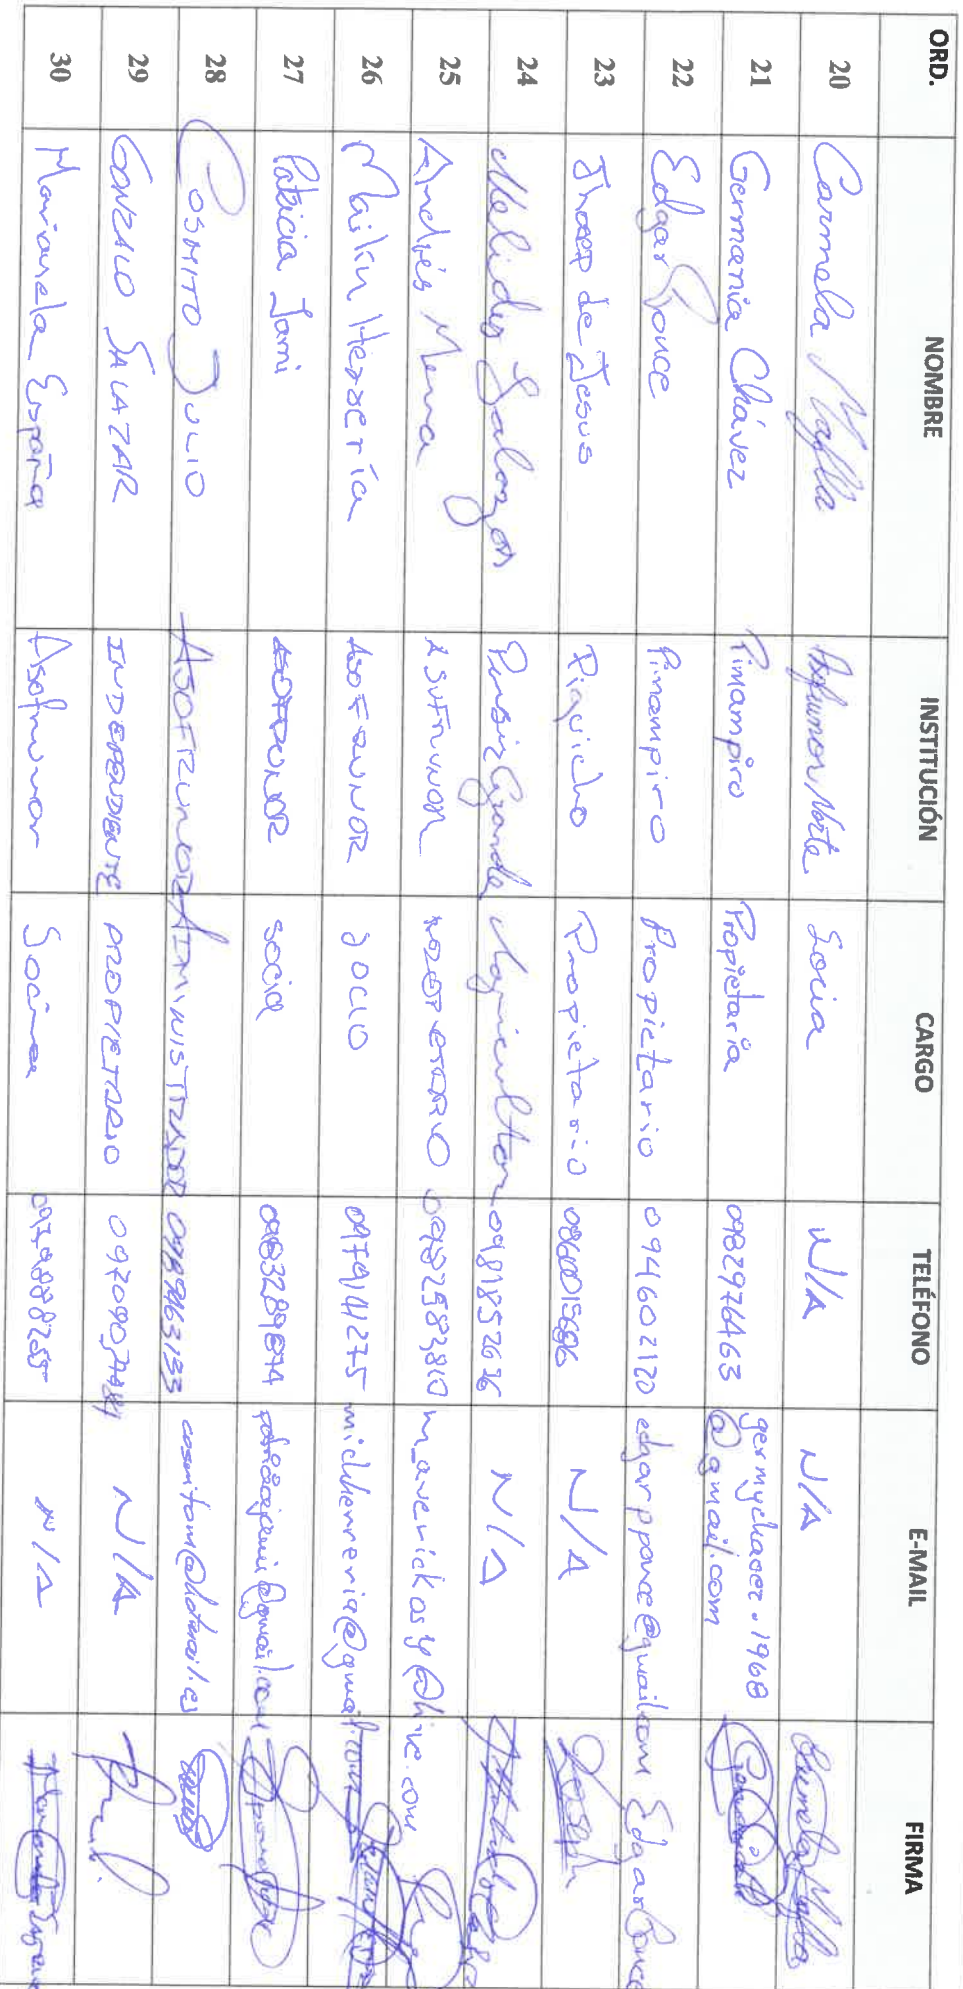 ORD. NOMBRE INSTITUCIÓN CARGO TELÉFONO E-MAIL FIRMA
20 Carmela Mafla Norte Socia N/A N/A Carmela Mafla
21 Germania Chávez Pimampiro Propietaria 0982976463 germychavez.1968
@gmail.com
22 Edgar Ponce Pimampiro Propietario 094602120 edgarpponce@gmail.com Edgar Ponce
23 Josep de Jesus Piquicho Propietario 0860015686 N/A Joseph
24 Melida Salazar Grande Agricultor 0981852636 N/A
25 Andrés Mena 0982583810 m_averickosy@live.com
26 Mailin Herrería ASOFRUNOR SOCIO 0979141275 micherreria@gmail.com
27 Patricia Jami ASOFRUNOR socia 0983289874
28 COSMITO JULIO ASOFRUNOR ADMINISTRADOR 0989463133 cosmitom@hotmail.es
29 GONZALO SALAZAR INDEPENDIENTE PROPIETARIO N/A
30 Marianela España Asofrunor Socia N/A